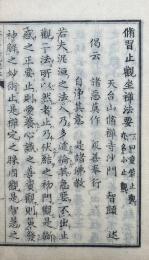 脩習止觀坐禪法要 一曰童蒙止觀 亦名小止觀
天台山脩禪寺沙門 智顗 述
偈云 諸惡莫作 衆善奉行
自淨其意 是諸佛教
若夫泥洹之法入乃多途論其急要不出止
觀二法所以然者止乃伏結之初門觀是斷
惑之正要止則愛養心識之善資觀則策發
神解之妙術止是禪定之勝因觀是智慧之